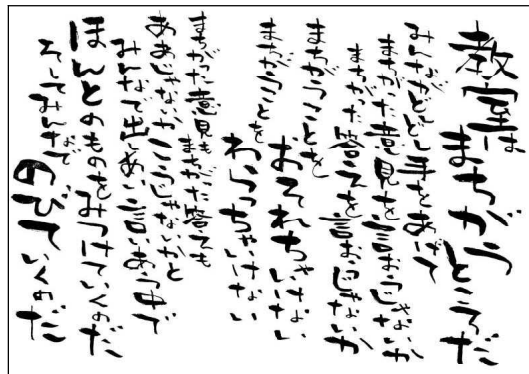 教室はまちがうところだ
みんながどしどし手をあげて
まちがった意見を言おうじゃないか
まちがった答えを言おうじゃないか
まちがうことをおそれちゃいけない
まちがうことをわらっちゃいけない
まちがった意見もまちがった答えも
ああじゃないかこうじゃないかと
みんなで出しあい言いあう中で
ほんとのものをみつけていくのだ
そしてみんなでのびていくのだ